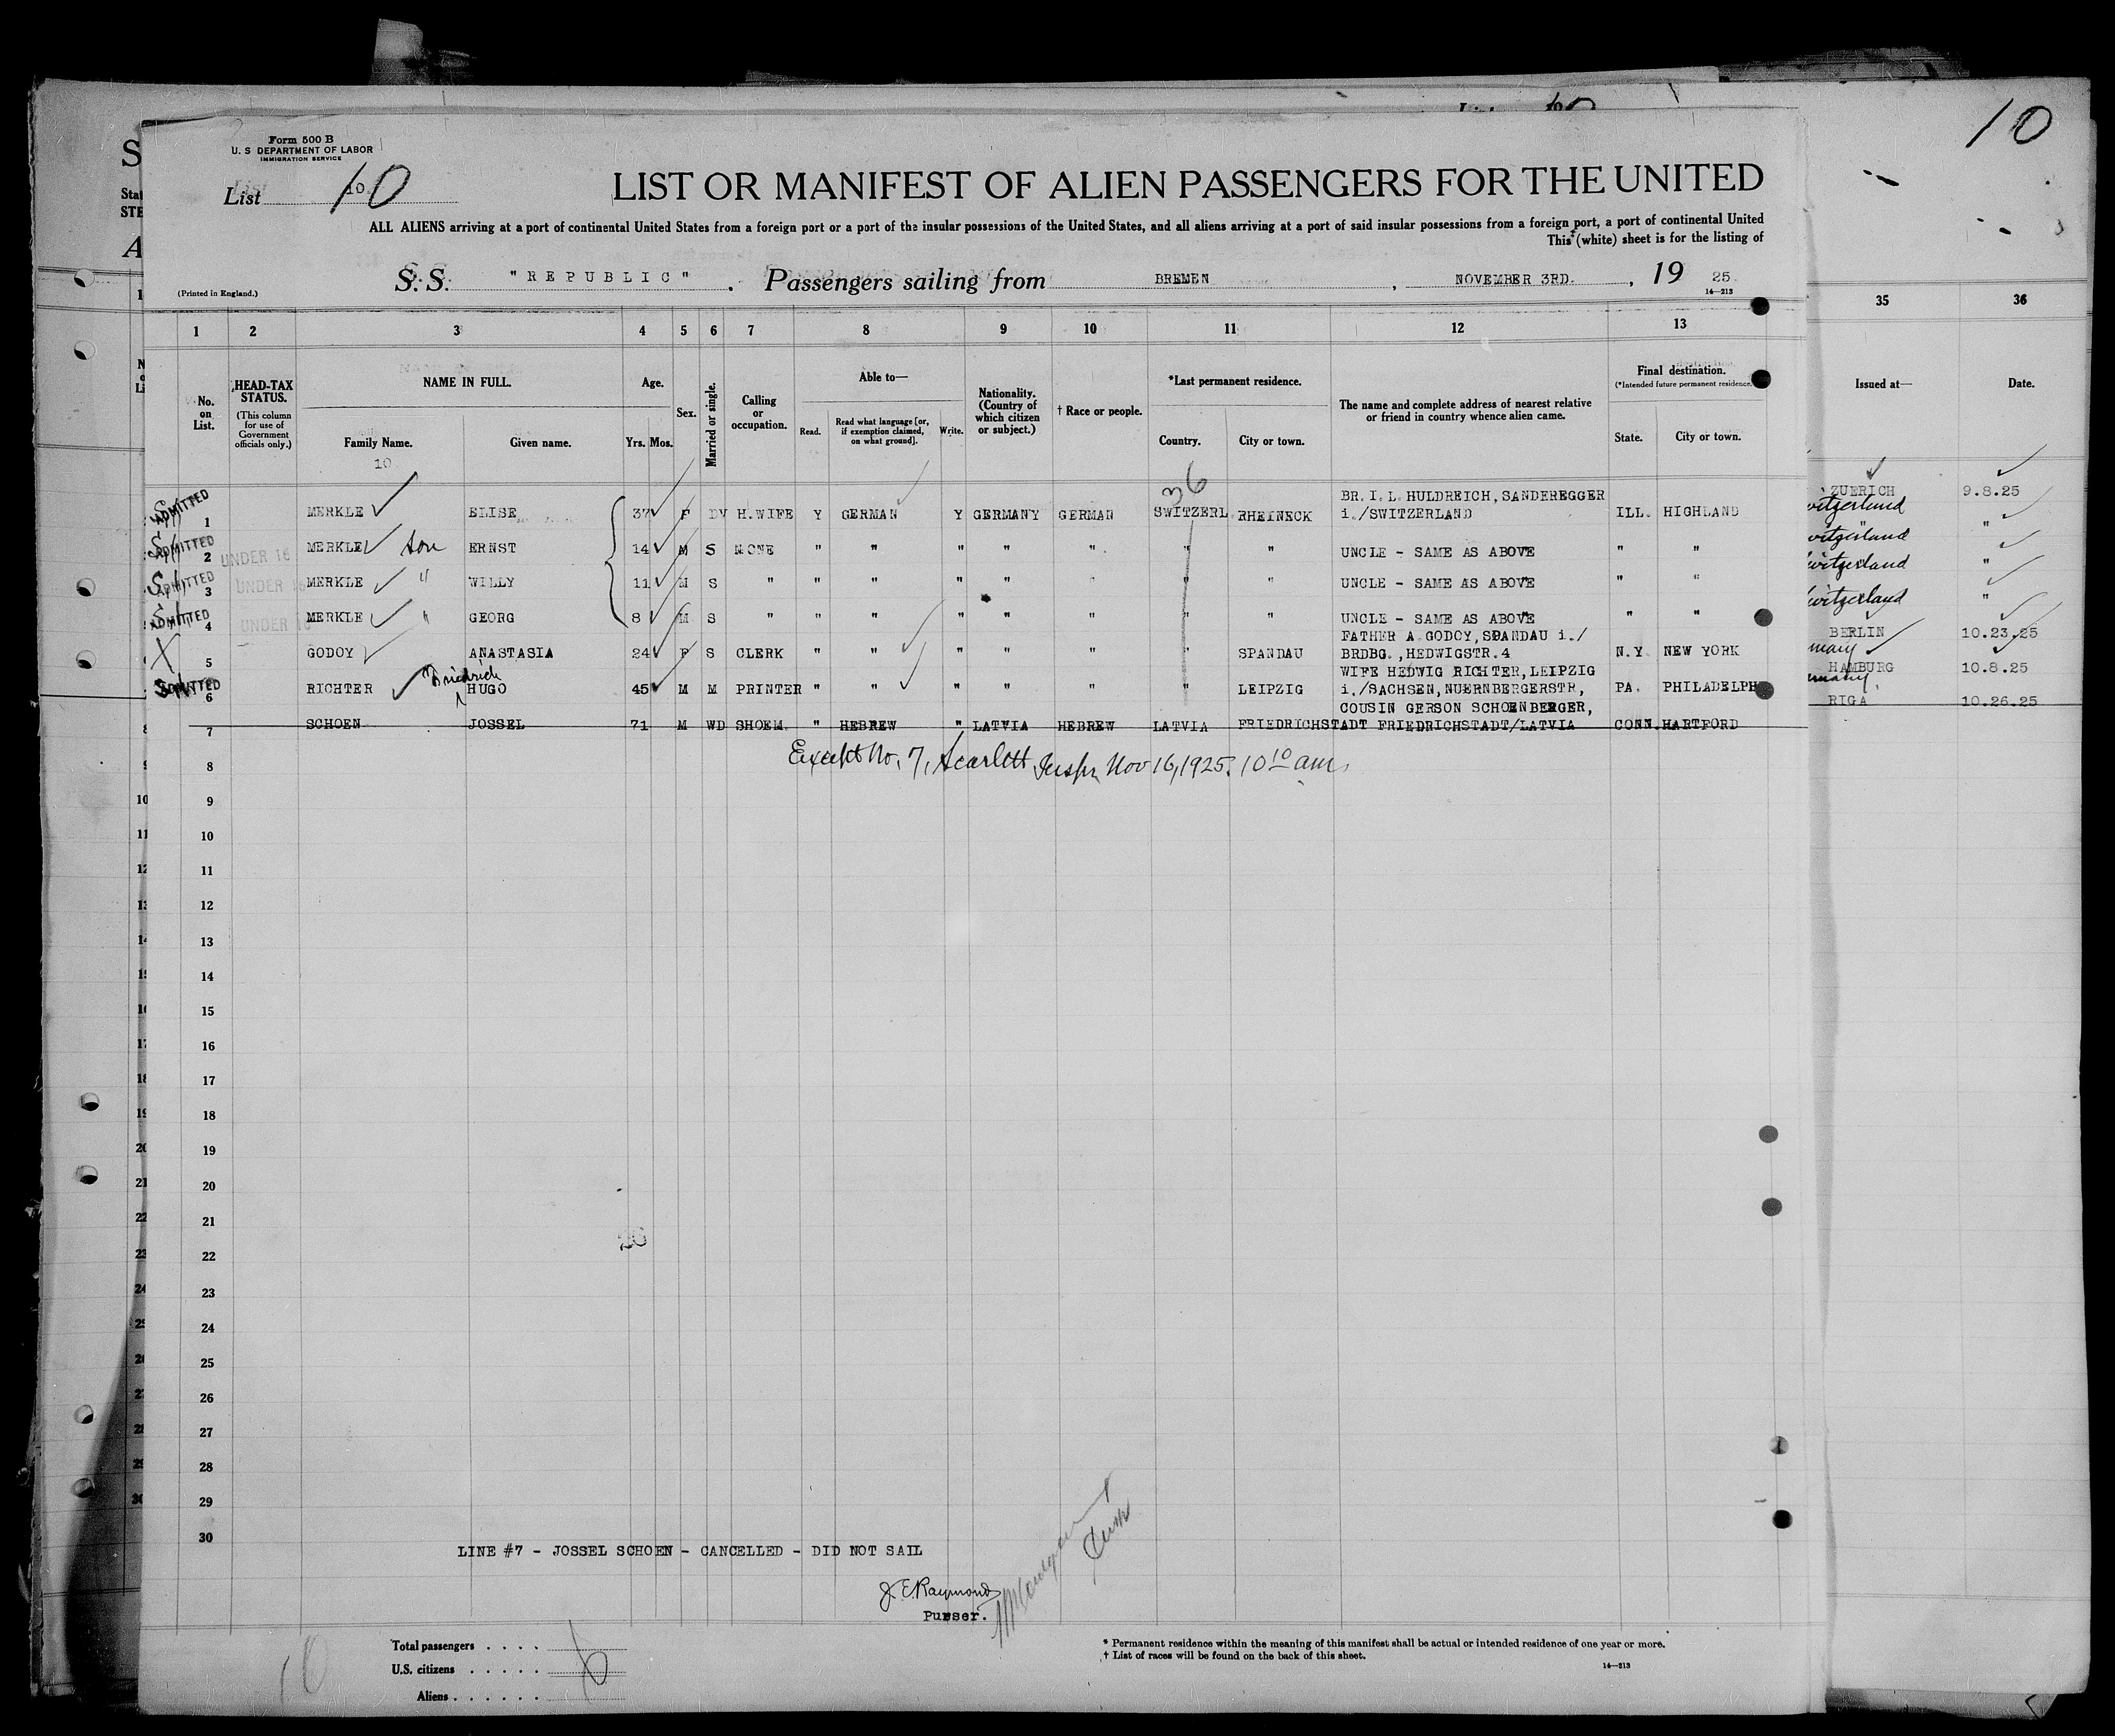 10
Form 500 B
U. S DEPARTMENT OF LABOR
IMMIGRATION SERVICE
List 10
LIST OR MANIFEST OF ALIEN PASSENGERS FOR THE UNITED
ALL ALIENS arriving at a port of continental United States from a foreign port or a port of the insular possessions of the United States, and all aliens arriving at a port of said insular possessions from a foreign port, a port of continental United
This (white) sheet is for the listing of
S. S. "REPUBLIC" . Passengers sailing from BREMEN , NOVEMBER 3RD. , 19 25
(Printed in England.)
14—213
1 2 3 4 5 6 7 8 9 10 11 12 13 35 36
No. on List.
HEAD-TAX STATUS.
(This column for use of Government officials only.)
NAME IN FULL.
Family Name. Given name.
10
Age.
Yrs. Mos.
Sex.
Married or single.
Calling or occupation.
Able to—
Read. Read what language [or, if exemption claimed, on what ground]. Write.
Nationality. (Country of which citizen or subject.)
† Race or people.
*Last permanent residence.
Country. City or town.
The name and complete address of nearest relative or friend in country whence alien came.
Final destination.
(*Intended future permanent residence.)
State. City or town.
Issued at— Date.
36
ADMITTED 1 MERKLE ELISE 37 F DV H.WIFE Y GERMAN Y GERMANY GERMAN SWITZERL RHEINECK BR. I. L. HULDREICH, SANDEREGGER i./SWITZERLAND ILL. HIGHLAND ZUERICH 9.8.25
ADMITTED 2 UNDER 16 MERKLE son ERNST 14 M S NONE " " " " " " " UNCLE - SAME AS ABOVE " " Switzerland "
ADMITTED 3 UNDER 16 MERKLE " WILLY 11 M S " " " " " " " " UNCLE - SAME AS ABOVE " " Switzerland "
ADMITTED 4 UNDER 16 MERKLE " GEORG 8 M S " " " " " " " " UNCLE - SAME AS ABOVE " " Switzerland "
X 5 GODOY ANASTASIA 24 F S CLERK " " " " " " SPANDAU FATHER A GODOY, SPANDAU i./ BRDBG., HEDWIGSTR.4 N.Y. NEW YORK BERLIN 10.23.25
ADMITTED 6 RICHTER Friedrich HUGO 45 M M PRINTER " " " " " " LEIPZIG WIFE HEDWIG RICHTER, LEIPZIG i./SACHSEN, NUERNBERGERSTR, PA. PHILADELPH HAMBURG 10.8.25
7 SCHOEN JOSSEL 71 M WD SHOEM. " HEBREW " LATVIA HEBREW LATVIA FRIEDRICHSTADT COUSIN GERSON SCHOENBERGER, FRIEDRICHSTADT/LATVIA CONN. HARTFORD RIGA 10.26.25
Except No. 7, Scarlett Inspr Nov 16, 1925. 10 10 am
8
9
10
11
12
13
14
15
16
17
18
19
20
21
22
23
24
25
26
27
28
29
30
LINE #7 - JOSSEL SCHOEN - CANCELLED - DID NOT SAIL
J. E. Raymond
Purser.
Total passengers . . . .
U.S. citizens . . . . .
Aliens . . . . . .
6
10
* Permanent residence within the meaning of this manifest shall be actual or intended residence of one year or more.
† List of races will be found on the back of this sheet.
14—213